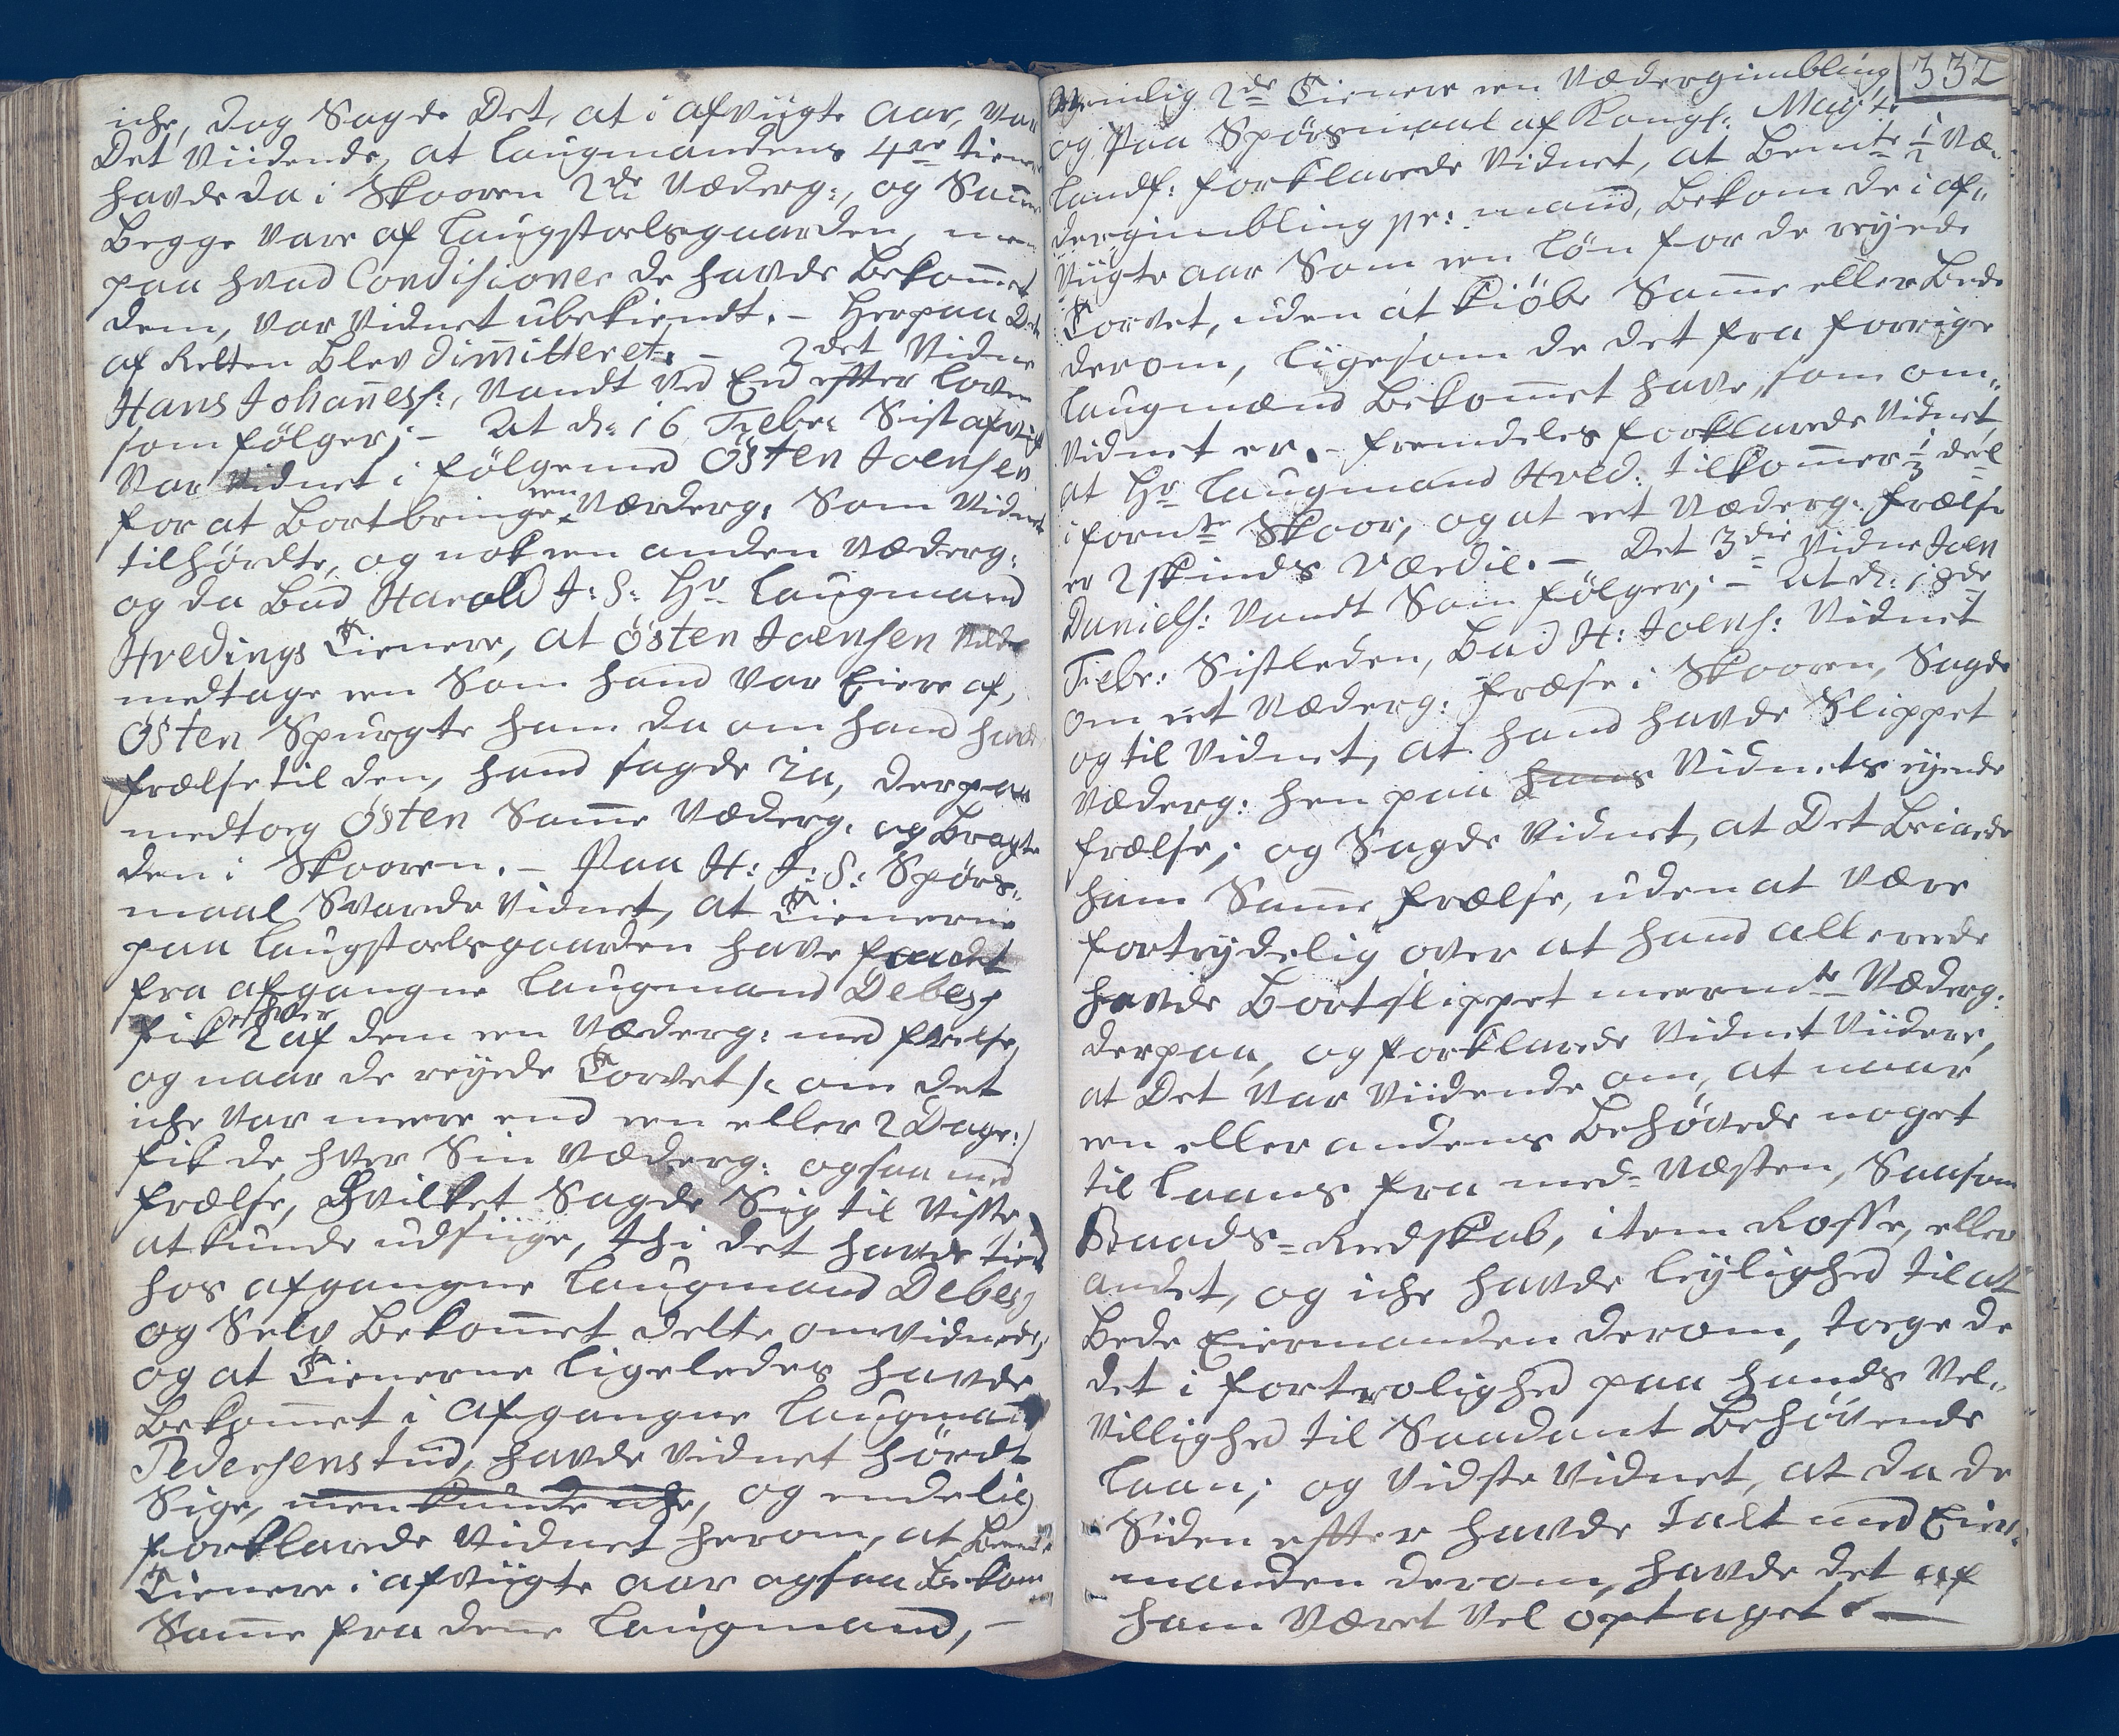 iche, dog Sagde Det, at i afvigte Aar, Var
Det Viidende, at Laugmandens 4re tiener
havde da i Skooren 2de Væderg:, og Samme
Begge Vare af Laugstoelsgaarden, men
paa hvad Condisioner de havde Bekommet
dem, Var Vidnet ubekiendt. – Herpaa Det
af Retten Blev Dimitteret. – 2det Vidne
Hans Johanness:, Vandt Ved Eed efter Loven
som følger; – At d: 16 Febr: Sist afvigt
Var Vidnet i følge med Østen Joensen
for at Bortbringe een Værderg: Som Vidnet
tilhørdte, og nok een anden Væderg:
og da Bad Harald J: S: Hr Laugmand
Hvedings Tienere, at Østen Joensen Vilde
medtage een Som hand Var Eiere af,
Østen Spurgte ham da om hand havde
frælse til den, hand sagde Ja, derpaa
medtog Østen Samme Væderg: og Bragte
den i Skooren. – Paa H: J: S: Spørs-
maal Svarede Vidnet, at Tienerne
paa Laugstoelsgaarden have faaedt
fra afgangne Laugmand Debes,
fik 2 af dem een Væderg: med frelse,
og naar de reyede Torvet /: om det
iche Var meere end een eller 2 Dage:/
fik de hver Sin Væderg: ogsaa med
frælse, Hvilket Sagde Sig til Visse
at kunde udsiige, thi det havde tient
hos afgangne Laugmand Debes,
og Selv Bekommet dette omvidnede,
og at Tienerne ligeledes havde
Bekommet i afgangne Laugmand
Pedersens tiid, havde Vidnet hørdt
Sige, men kunde iche, og endelig
forklarede Vidnet herom, at Bemte
Tienere i afviigte aar ogsaa Bekom
Samme fra denne Laugmand, –
332
Nemlig 2de Tienere een Vædergimbling,
og Paa Spørsmaal af Kongl: Mayts
Landf: forklarede Vidnet, at Bemte 1/2 Væ-
dergimbling pr: mand, Bekom de i af-
viigte aar Som een Løn for de reyede
Torvet, uden at Kiøbe Samme eller Bede
derom, ligesom de det fra forrige
Laugmænd Bekommet have, som om-
Vidnet er. – fremdeles forklarede Vidnet,
at Hr Laugmand Hved: tilkommer 1/3 deel
i fornte Skoor, og at eet Væderg: frælse
er 2 skinds Værdie. – Det 3die Vidne Joen
Daniels: Vandt Som følger; – At d: 18de
Febr: Sistleden, Bad H: Joens: Vidnet
om eet Væderg: fræse i Skooren, Sagde
og til Vidnet, at hand havde Slippet
Væderg: hen paa hans Vidnets eyende
frælse; og Sagde Vidnet, at Det Beiaede
ham Samme frælse, uden at Være
fortrydelig over at hand allereede
havde Bortslippet meermte Væderg:
derpaa, og forklarede Vidnet Viidere,
at Det Var Viidende om, at naar
een eller andens Behøvede noget
til Laans fra med-Næsten, Saasom
Baads-Redskab, item Rosse, eller
andet, og iche havde leylighed til at
Bede Eiermanden derom, toege de
det i fortrolighed paa hands Vel-
villighed til Saadant Behøvende
Laan; og Vidste Vidnet, at da de
Siden efter havde talt med Eier-
manden derom, havde det af
ham Været Vel optaget. –